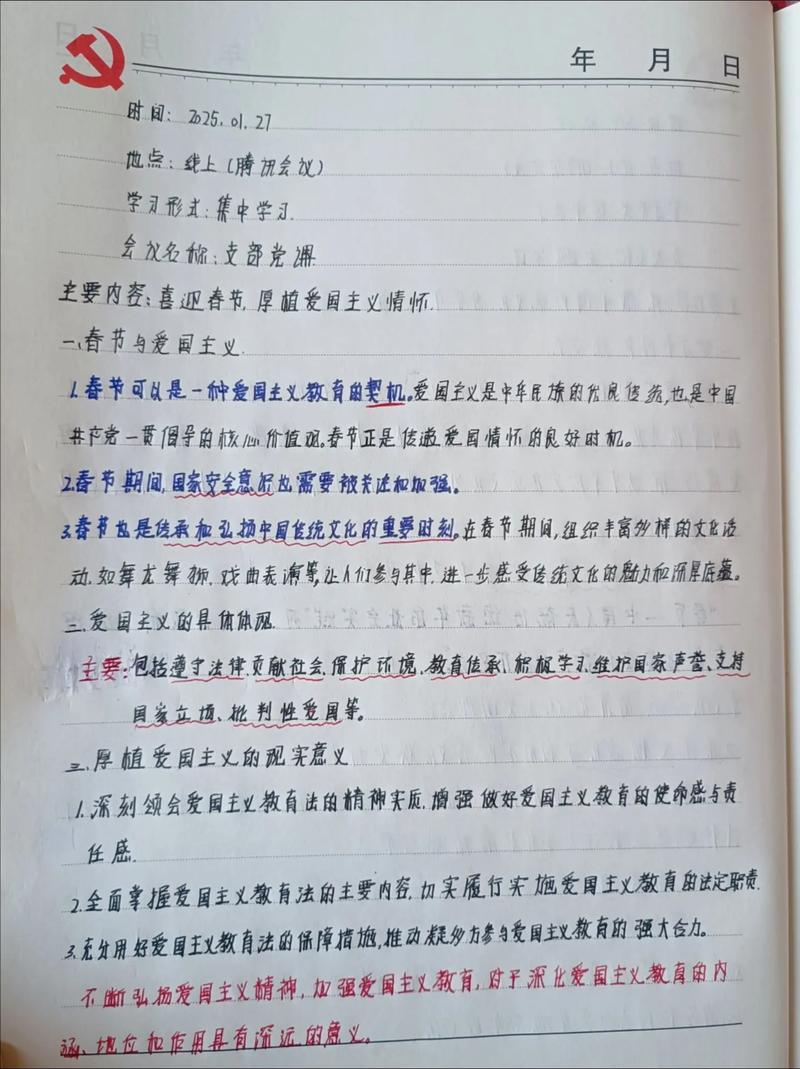 年 月 日
时间：2025.01.27
地点：线上（腾讯会议）
学习形式：集中学习
会议名称：支部党课
主要内容：喜迎春节,厚植爱国主义情怀.
一、春节与爱国主义.
1.春节可以是一种爱国主义教育的契机。爱国主义是中华民族的优良传统,也是中国
共产党一贯倡导的核心价值观。春节正是传递爱国情怀的良好时机。
2.春节期间,国家安全意识也需要被关注和加强。
3.春节也是传承和弘扬中国传统文化的重要时刻。在春节期间,组织丰富多样的文化活
动.如舞龙舞狮,戏曲表演等,让人们参与其中,进一步感受传统文化的魅力和深厚底蕴。
二.爱国主义的具体体现.
主要：包括遵守法律、贡献社会、保护环境、教育传承、积极学习、维护国家声誉、支持
国家立场、批判性爱国等。
三.厚植爱国主义的现实意义
1.深刻领会爱国主义教育法的精神实质,增强做好爱国主义教育的使命感与责
任感.
2.全面掌握爱国主义教育法的主要内容,切实履行实施爱国主义教育的法定职责.
3.充分用好爱国主义教育法的保障措施,推动凝多方参与爱国主义教育的强大合力。
不断弘扬爱国主义精神,加强爱国主义教育,对于深化爱国主义教育的内
涵、地位和作用具有深远的意义。